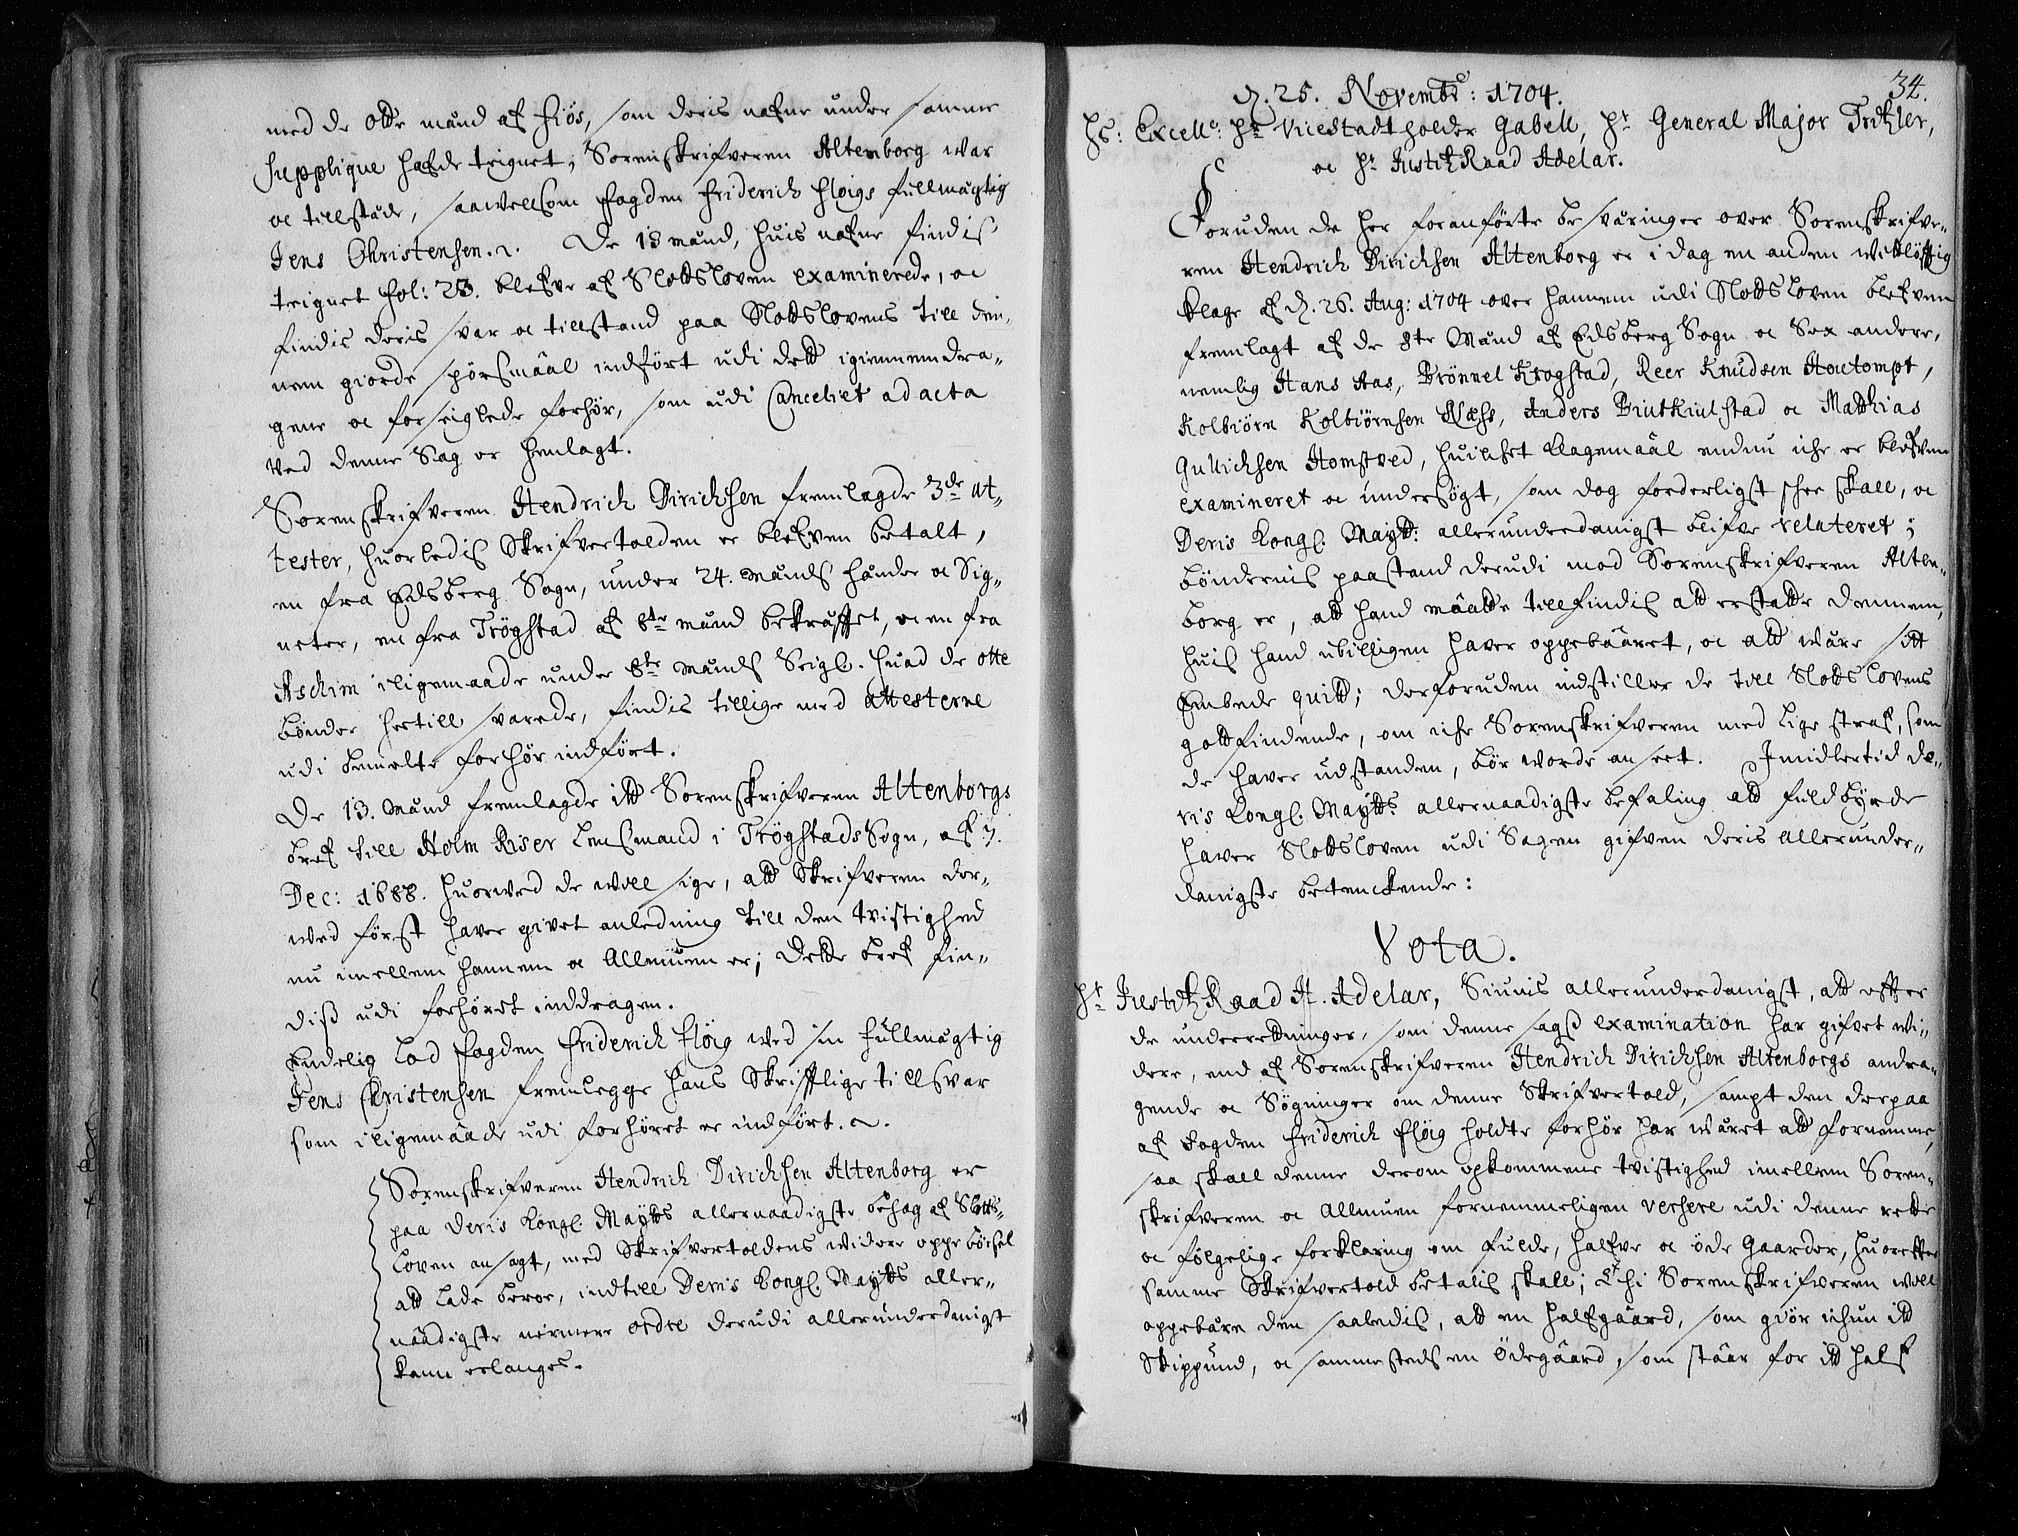 med de otte mænd af Fiös, som deris nafne under samme
Supplique hafde tegnet, Sorenskrifveren Altenborg war
oc tillstæde, saavellsom Fogden Friderich Fløigs fullmægtig
Jens Christensen. De 13 mænd, huis nafne findis
tegnet fol: 23. blefve af Slottsloven examinerede, oc
findis deris svar oc tillstand paa Slottslovens till den-
nem giorde spörsmaal indført udi dett igiennemdra-
gene oc forseiglede forhör, som udi Cancelict ad acta
ved denne Sag er henlagt.
Sorenskrifveren Hendrich Dirichsen fremlagde 3de at-
tester, huorledis Skrifvertolden er blefven betalt,
en fra Edsberg Sogn, under 24. mænds hænder oc Sig-
neter, en fra Trögstad af 8te mænd bekræfftet, oc en fra
Aschim iligemaade under 8te mænds Seigl. Huad de otte
bønder hertill svarede, findis tillige med attesterne
udi bemelte forhör indført.
De 13. mænd fremlagde itt Sorenskrifveren Altenborgs
bref till Holm Riser Lensmand i Trögstads Sogn, af 7.
Dec: 1688. huorved de will sige, att Skrifveren der-
wed først haver givet anledning till den tvistighed
nu imellem hannem oc Allmuen er; Dette bref fin-
diß udi forhöret inddragen.
Endelig lod Fogden Friderich Flöig wed sin fullmægtig
Jens Christensen fremlegge hans Skrifftlige tillsvar
som iligemaade udi forhöret er indført.
Sorenskrifveren Hendrich Dirichsen Altenborg er
paa Deris Kongl. Maytts allernaadigste behag af Slotts-
loven ansagt, med Skrifvertoldens widere oppebörsel
att lade beroe, indtill Deris Kongl. Maytts aller-
naadigste nermere ordre derudi allerunderdanigst
kann erlanges.
34.
D. 25. Novembr: 1704.
Hs: Excell: Hr Vicestadtholder Gabell, Hr General Major Tritzler,
oc Hr Justitz Raad Adelar.
Foruden de her foranførte besværinger over Sorenskrifve-
ren Hendrich Dirichsen Altenborg er i dag en anden widtløfftig
klage af D. 26. Aug: 1704 over hannem udi Slottsloven blefven
fremlagt af de 8te Mænd af Edsberg Sogn oc Sex andere,
nemlig Hans Aas, Brönnel Krogstad, Reer Knudsen Houtompt,
Kolbiörn Kolbiörnsen Næss, Anders Biutkiulstad oc Matthias
Gullichsen Homstved, huilchet klagemaal endnu iche er blefven
examineret oc undersögt, som dog forderligst schee skall, oc
Deris Kongl. Maytt: allerunderdanigst blifve relateret;
bøndernis paastand derudi mod Sorenskrifveren Alten-
borg er, att hand maatte tillfindis att erstatte dennem,
huis hand ubilligen haver oppebaaret, oc att wære sitt
Embede quitt; derforuden indstiller de till Slottslovens
gottfindende, om iche Sorenskrifveren med lige straf, som
de haver udstanden, bör worde anseet. Imidlertid De-
ris Kongl. Maytts allernaadigste befaling att fuldbyrde
haver Slottsloven udi Sagen gifven deris allerunder-
danigste betenckende:
Vota.
Hr Justitz Raad H. Adelar, Siunis allerunderdanigst, att effter
de underrettninger, som denne sags examination har gifvet wi-
dere, end af Sorenskrifveren Hendrich Dirichsen Altenborgs andra-
gende oc Søgninger om denne Skrifvertold, sampt den derpaa
af Fogden Friderich Flöig holdte forhör har wæret att fornemme,
saa skall denne derom opkommene tvistighed imellem Soren-
skrifveren oc Allmuen fornemmeligen versere udi denne rette
oc følgelige forklaring om fulde, halfve oc öde Gaarder, huoreffter
samme Skrifvertold betalis skall; Thi Sorenskrifveren will
oppebære den saaledis, att en halfgaard, som giør ichun itt
Skippund, oc sammesteds en Ödegaard, som staar for itt half